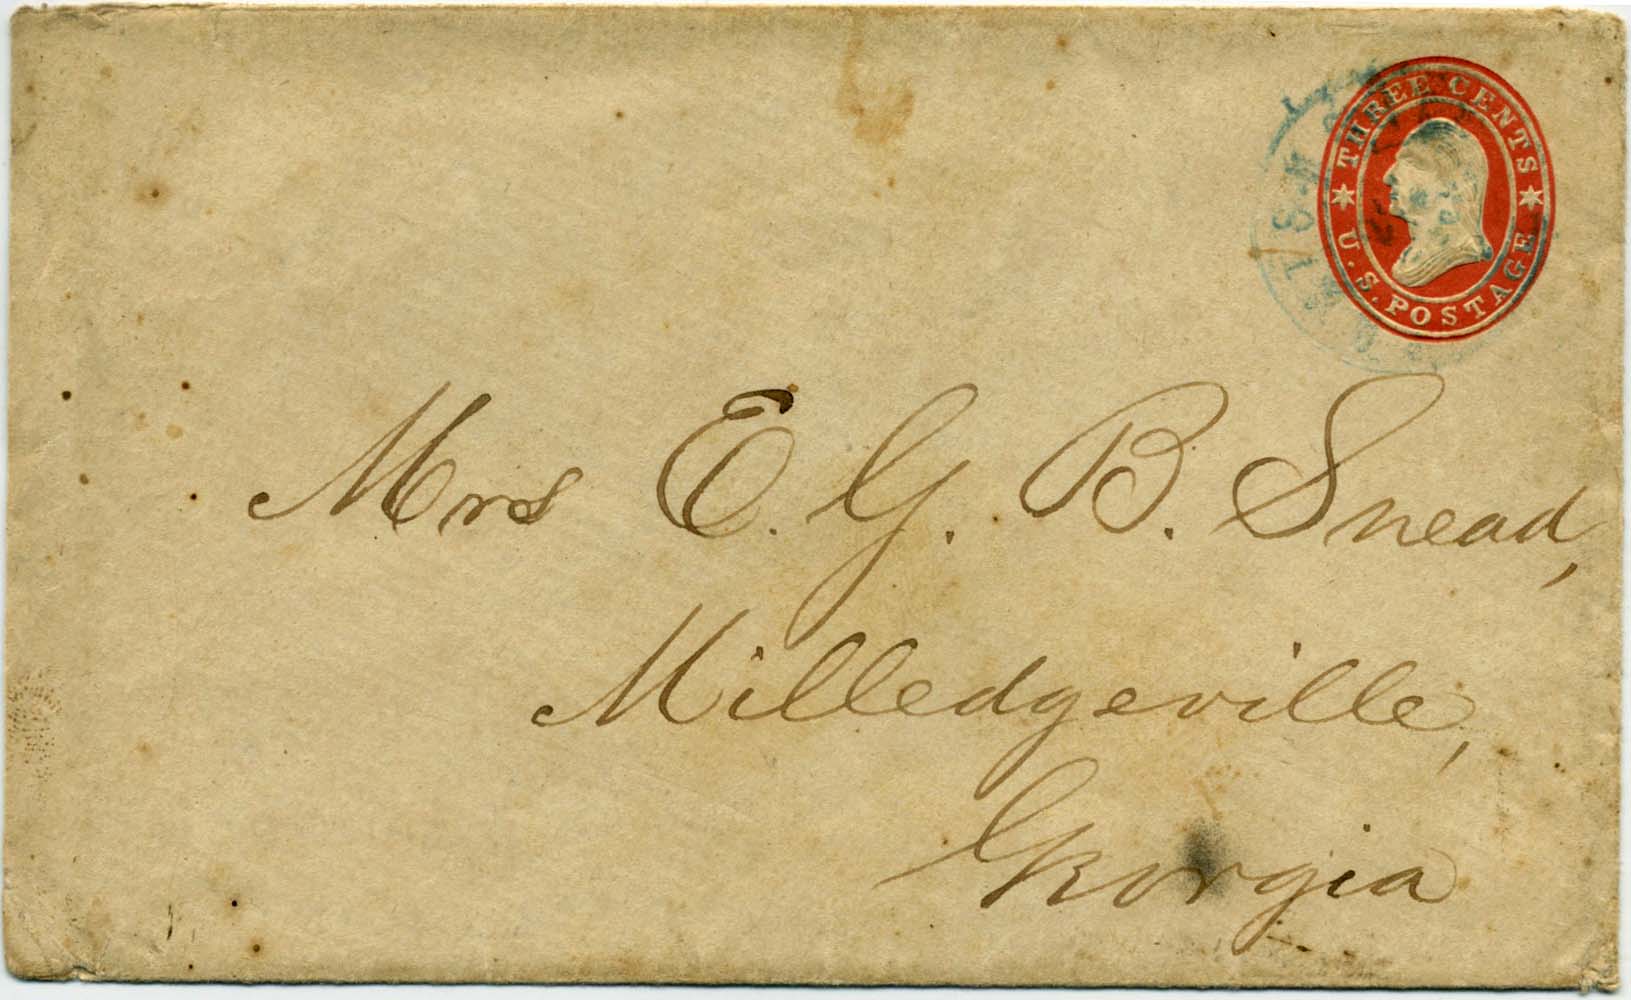 THREE CENTS
U.S. POSTAGE
Mrs E. G. B. Snead,
Milledgeville,
Georgia